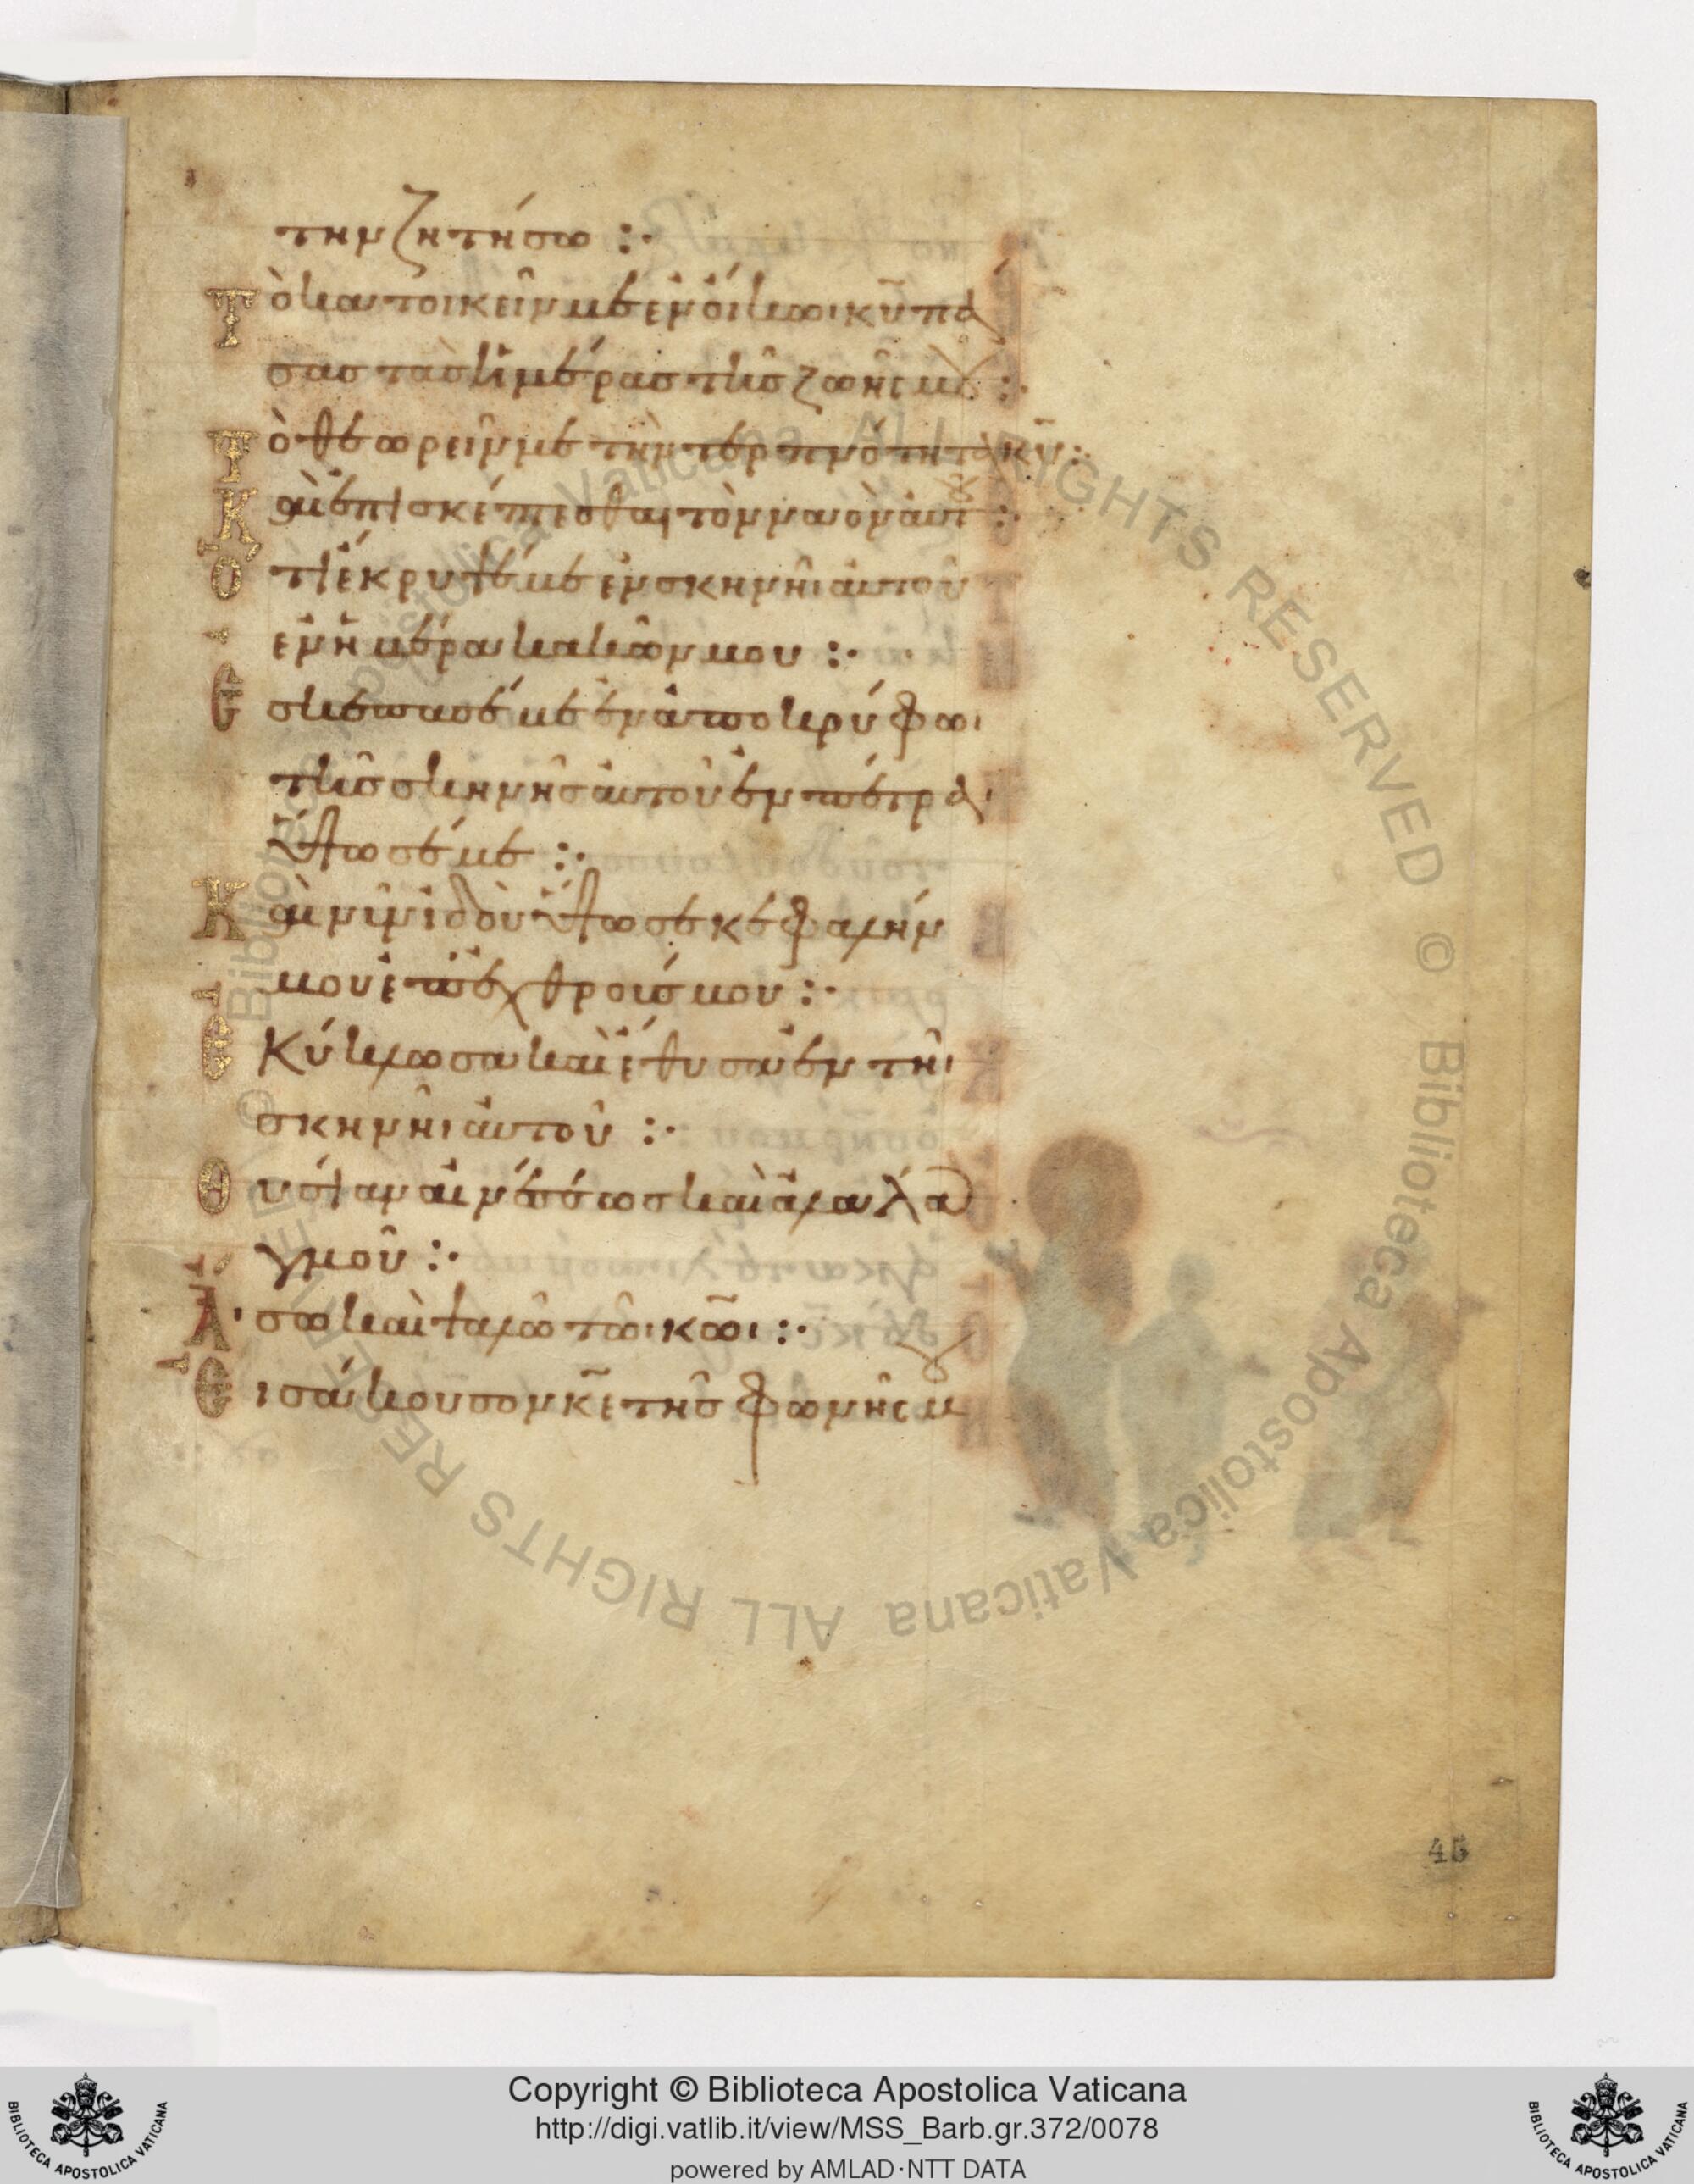 την ζητήσω :·
Τὸ κατοικεῖν με ἐν οἴκωι κ̅υ̅ πά
σας τὰς ἡμέρας τῆς ζωῆς μου :·
Τὸ θεωρεῖν με τὴν τερπνότητα κ̅υ̅ :·
Καὶ ἐπισκέπτεσθαι τὸν ναὸν αὐτοῦ :·
Ὅτι ἔκρυψέ με ἐν σκηνῆι αὐτοῦ
ἐν ἡμέρα κακῶν μου :·
Ἐσκέπασέ με ἐν ἀποκρύφωι
τῆς σκηνῆς αὐτοῦ ἐν πέτραι
ὕψωσέ με :·
Καὶ νῦν ἰδοὺ ὕψωσε κεφαλήν
μου ἐπ ἐχθρούς μου :·
Ἐκύκλωσα καὶ ἔθυσα ἐν τῆι
σκηνῆι αὐτοῦ :·
Θυσίαν αἰνέσεως καὶ ἀλαλα
γμοῦ :·
Ἄσω καὶ ψαλῶ τῶι κ̅ω̅ι :·
Εἰσάκουσον κ̅ε̅ τῆς φωνῆς μου
45
© Biblioteca Apostolica Vaticana ALL RIGHTS RESERVED © Biblioteca Apostolica Vaticana ALL RIGHTS RESERVED
Copyright © Biblioteca Apostolica Vaticana
http://digi.vatlib.it/view/MSS_Barb.gr.372/0078
powered by AMLAD·NTT DATA
BIBLIOTECA APOSTOLICA VATICANA
BIBLIOTECA APOSTOLICA VATICANA